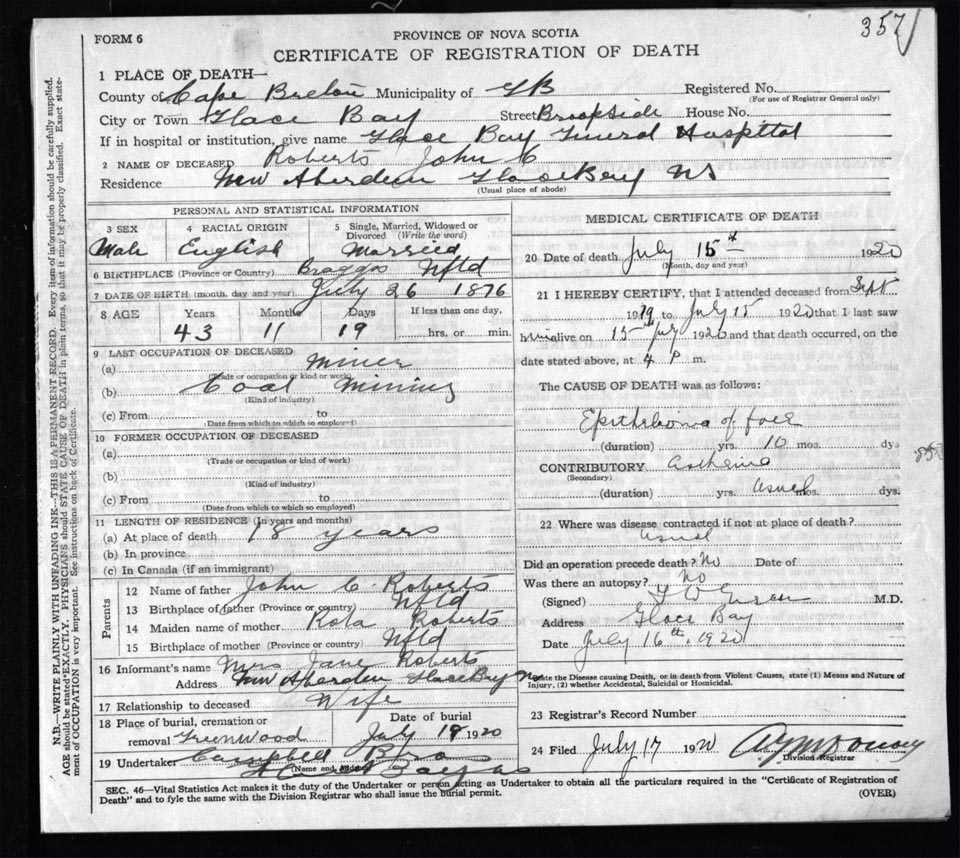 357
FORM 6
PROVINCE OF NOVA SCOTIA
CERTIFICATE OF REGISTRATION OF DEATH
1 PLACE OF DEATH—
County of Cape Breton Municipality of GB Registered No.
(For use of Registrar General only)
City or Town Glace Bay Street Brookside House No.
If in hospital or institution, give name Glace Bay General Hospital
2 NAME OF DECEASED Roberts John C
Residence New Aberdeen Glace Bay NS
(Usual place of abode)
PERSONAL AND STATISTICAL INFORMATION
3 SEX 4 RACIAL ORIGIN 5 Single, Married, Widowed or Divorced (Write the word)
Male English Married
6 BIRTHPLACE (Province or Country) Braggs Nfld
7 DATE OF BIRTH (month, day and year) July 26 1876
8 AGE Years Months Days If less than one day,
43 11 19 hrs. or min.
9 LAST OCCUPATION OF DECEASED
(a) Miner
(Trade or occupation or kind of work)
(b) Coal Mining
(Kind of industry)
(c) From to
(Date from which to which so employed)
10 FORMER OCCUPATION OF DECEASED
(a)
(Trade or occupation or kind of work)
(b)
(Kind of industry)
(c) From to
(Date from which to which so employed)
11 LENGTH OF RESIDENCE (In years and months)
(a) At place of death 18 years
(b) In province
(c) In Canada (if an immigrant)
Parents
12 Name of father John C. Roberts
13 Birthplace of father (Province or country) Nfld
14 Maiden name of mother Kota Roberts
15 Birthplace of mother (Province or country) Nfld
16 Informant's name Mrs Jane Roberts
Address New Aberdeen Glace Bay NS
17 Relationship to deceased Wife
18 Place of burial, cremation or removal Greenwood
Date of burial July 19 1920
19 Undertaker Bro
(Name and address)
MEDICAL CERTIFICATE OF DEATH
20 Date of death July 15th 1920
(Month, day and year)
21 I HEREBY CERTIFY, that I attended deceased from Sept
1919 to July 15 1920 that I last saw
him alive on 15th July 1920 and that death occurred, on the
date stated above, at 4 P m.
The CAUSE OF DEATH was as follows:
Epithelioma of face
(duration) yrs. 10 mos. dys
CONTRIBUTORY Asthenia
(Secondary)
(duration) yrs. mos. dys.
22 Where was disease contracted if not at place of death?
Did an operation precede death? No Date of
Was there an autopsy? No
(Signed) M.D.
Address Glace Bay
Date July 16th, 1920
State the Disease causing Death, or in death from Violent Causes, state (1) Means and Nature of
Injury, (2) whether Accidental, Suicidal or Homicidal.
23 Registrar's Record Number
24 Filed July 17 1920
Division Registrar
SEC. 46—Vital Statistics Act makes it the duty of the Undertaker or person acting as Undertaker to obtain all the particulars required in the "Certificate of Registration of
Death" and to fyle the same with the Division Registrar who shall issue the burial permit. (OVER)
N.B.—WRITE PLAINLY WITH UNFADING INK—THIS IS A PERMANENT RECORD. Every item of information should be carefully supplied.
AGE should be stated EXACTLY. PHYSICIANS should STATE CAUSE OF DEATH in plain terms, so that it may be properly classified. Exact state-
ment of OCCUPATION is very important. See instructions on back of Certificate.